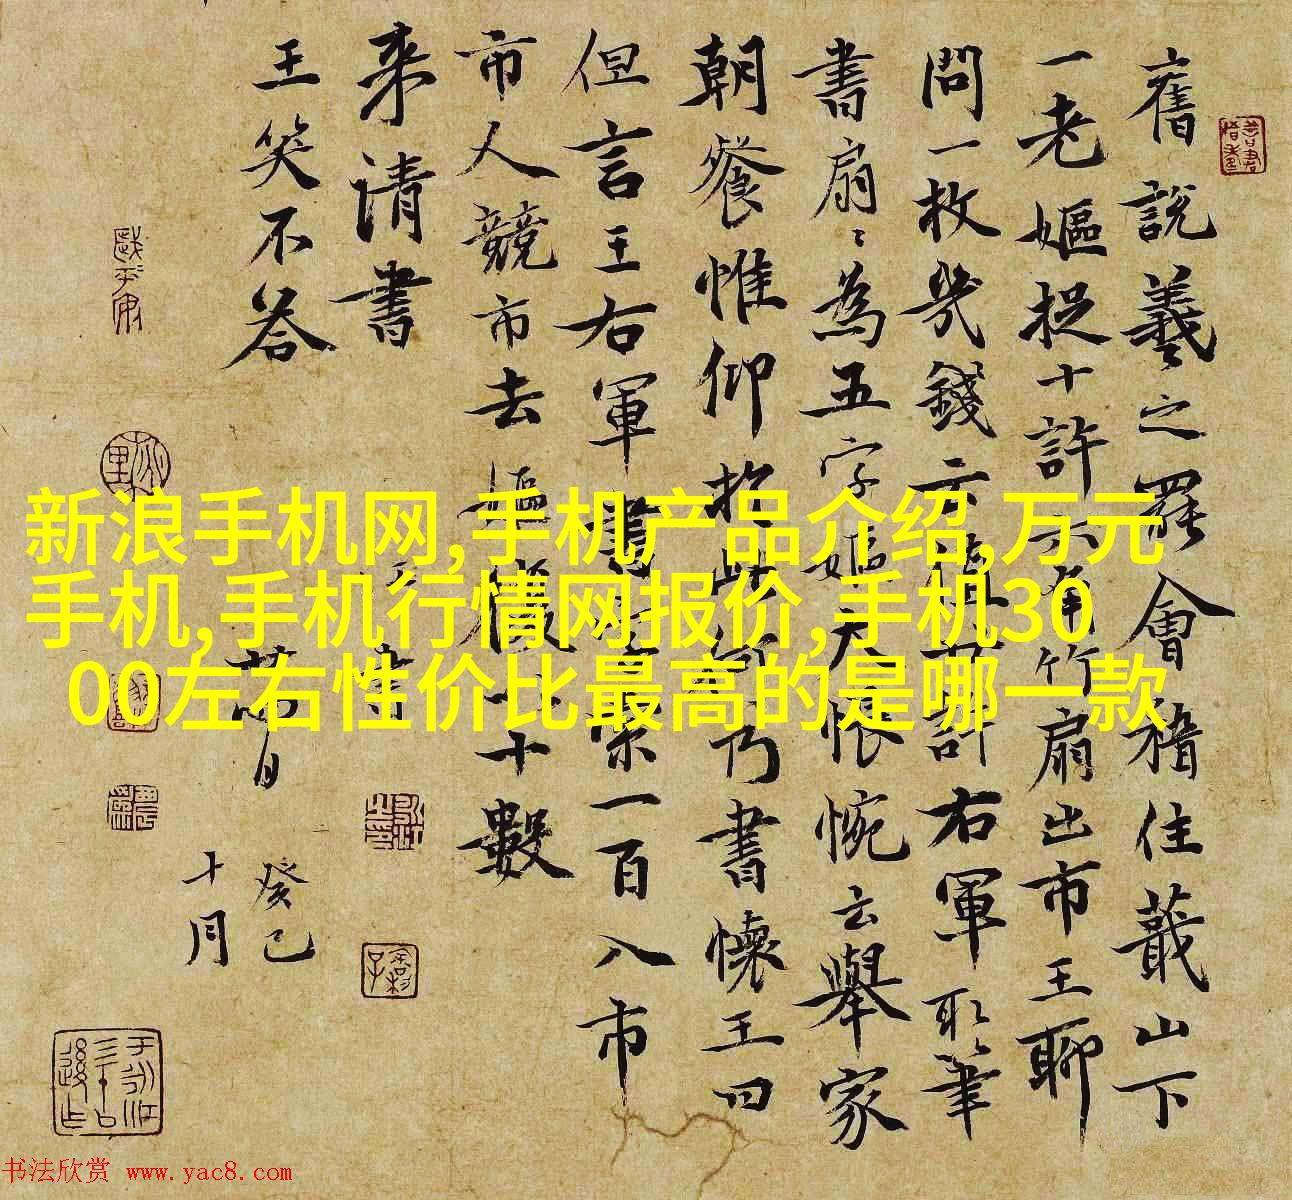 舊說羲之罷會稽住蕺山下
一老嫗捉十許六角竹扇出市王聊
問一枚幾錢云值廿許右軍取筆
書扇扇為五字嫗大悵惋云舉家
朝餐惟仰於此何乃書壞王曰
但言王右軍書字索一百入市
市人競市去嫗復以十數
来請書
王笑不答
癸巳
十月
新浪手机网,手机产品介绍,万元
手机,手机行情网报价,手机30
00左右性价比最高的是哪一款
书法欣赏 www.yac8.com